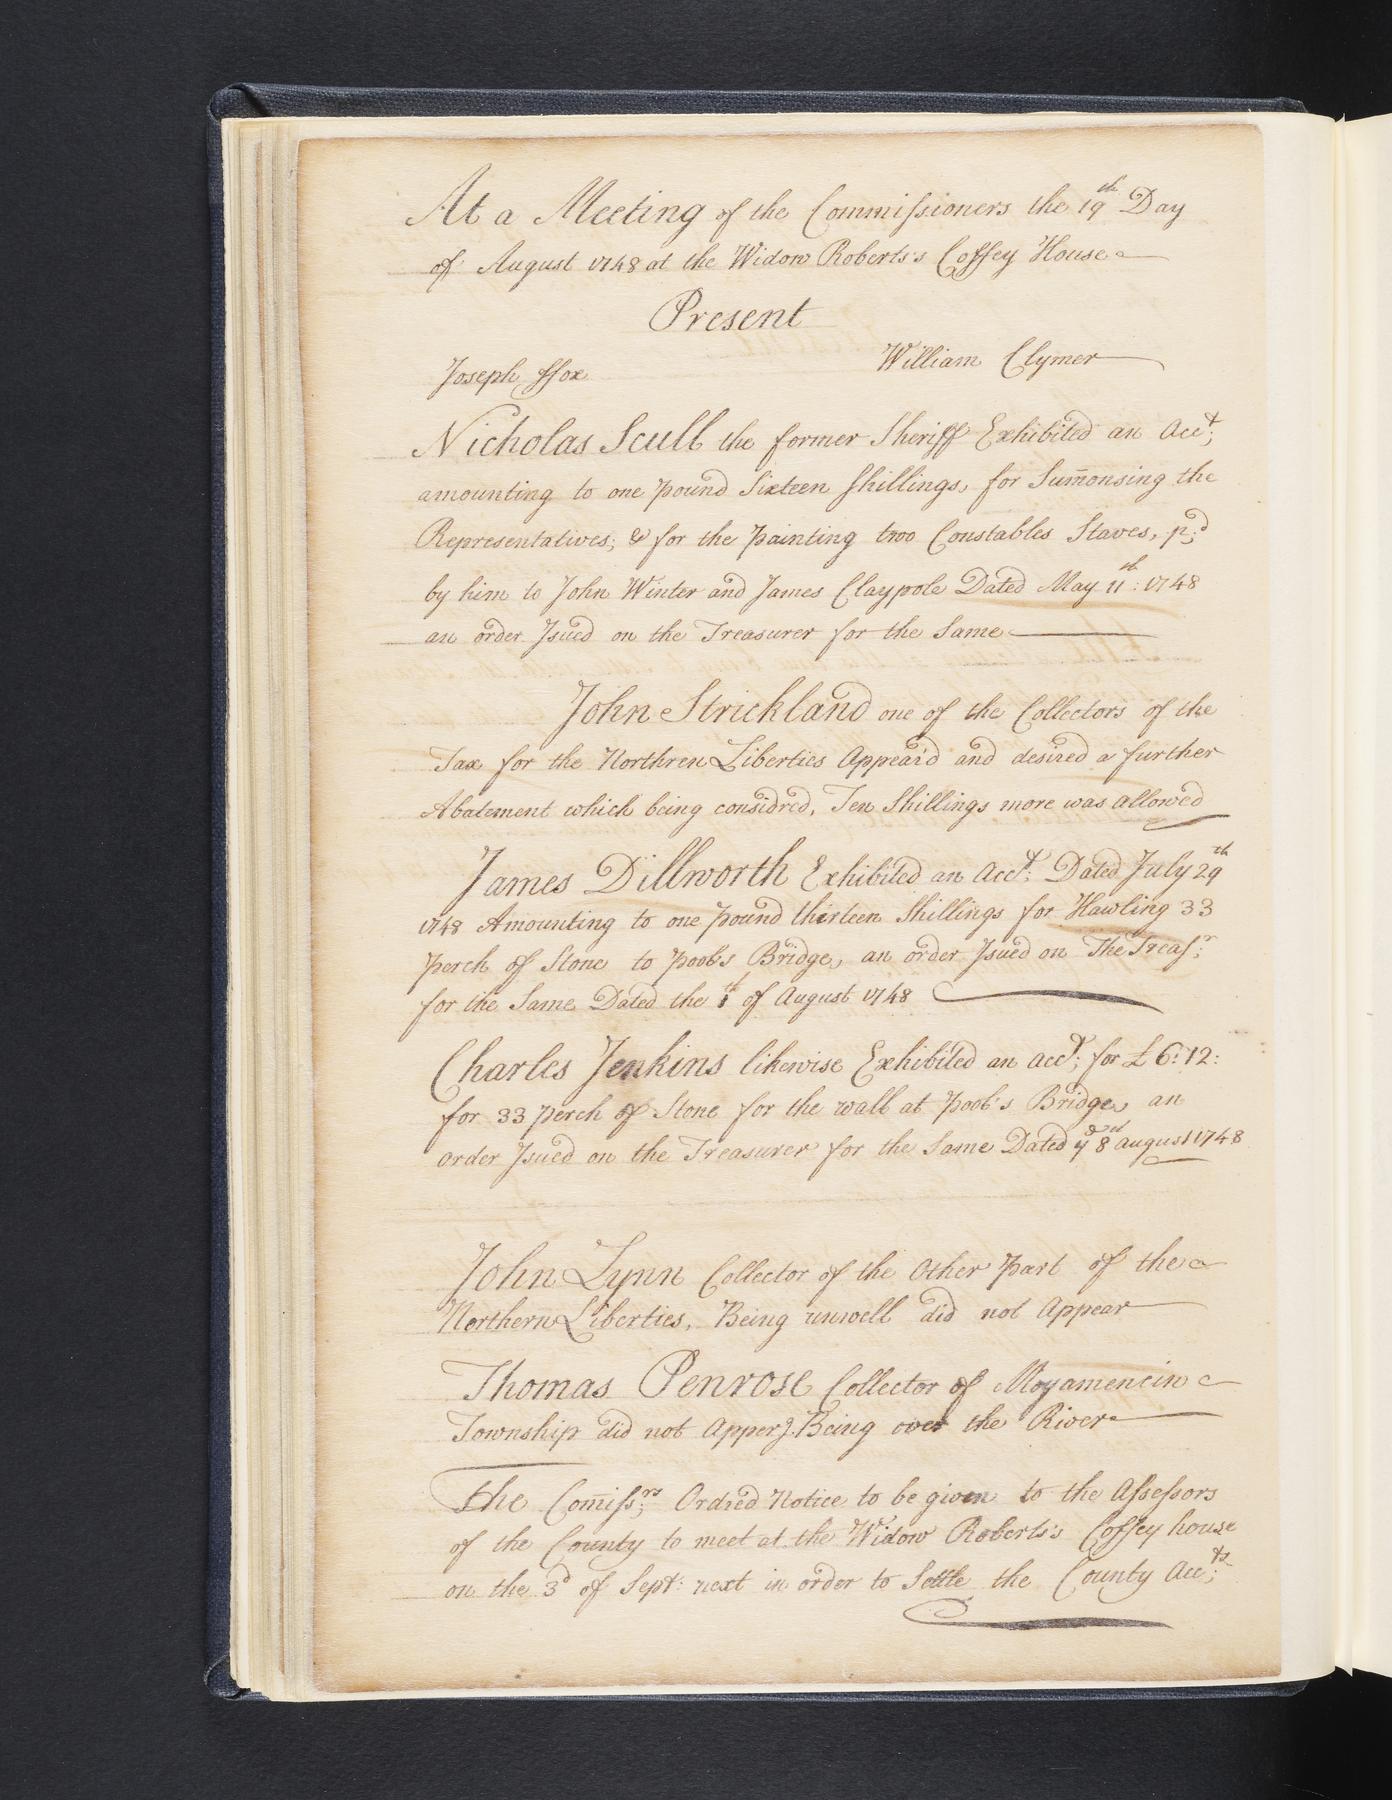 At a Meeting of the Commissioners the 19th Day
of August 1748 at the Widow Roberts's Coffey House
Present
William Clymer
Joseph ffox
Nicholas Scull the former Sheriff Exhibited an Acct;
amounting to one pound Sixteen Shillings, for Sum̄onsing the
Representatives; & for the painting two Constables Staves, p;d
by him to John Winter and James Claypole Dated May 11th: 1748
an order Isued on the Treasurer for the Same
John Strickland one of the Collectors of the
Tax for the Northren Liberties Appear'd and desired a further
Abatement which being considred, Ten Shillings more was allowed
James Dillworth Exhibited an Acct; Dated July 29th
1748 Amounting to one pound thirteen Shillings for Hawling 33
perch of Stone to Pool's Bridge, an order Isued on The Treasr;
for the Same Dated the 1th of August 1748
Charles Jenkins likewise Exhibited an acct; for £6:12:
for 33 perch of Stone for the wall at Pool's Bridge, an
order Isued on the Treasurer for the Same Dated ye 8th august 1748
John Lynn Collector of the Other Part of the
Northern Liberties, Being unwell did not Appear
Thomas Penrose Collector of Moyamencin
Township did not Apper, Being over the River
The Com̄iss;rs Ordred Notice to be given to the Assessors
of the County to meet at the Widow Roberts's Coffey house
on the 3d of Sept: next in order to Settle the County Acc;ts